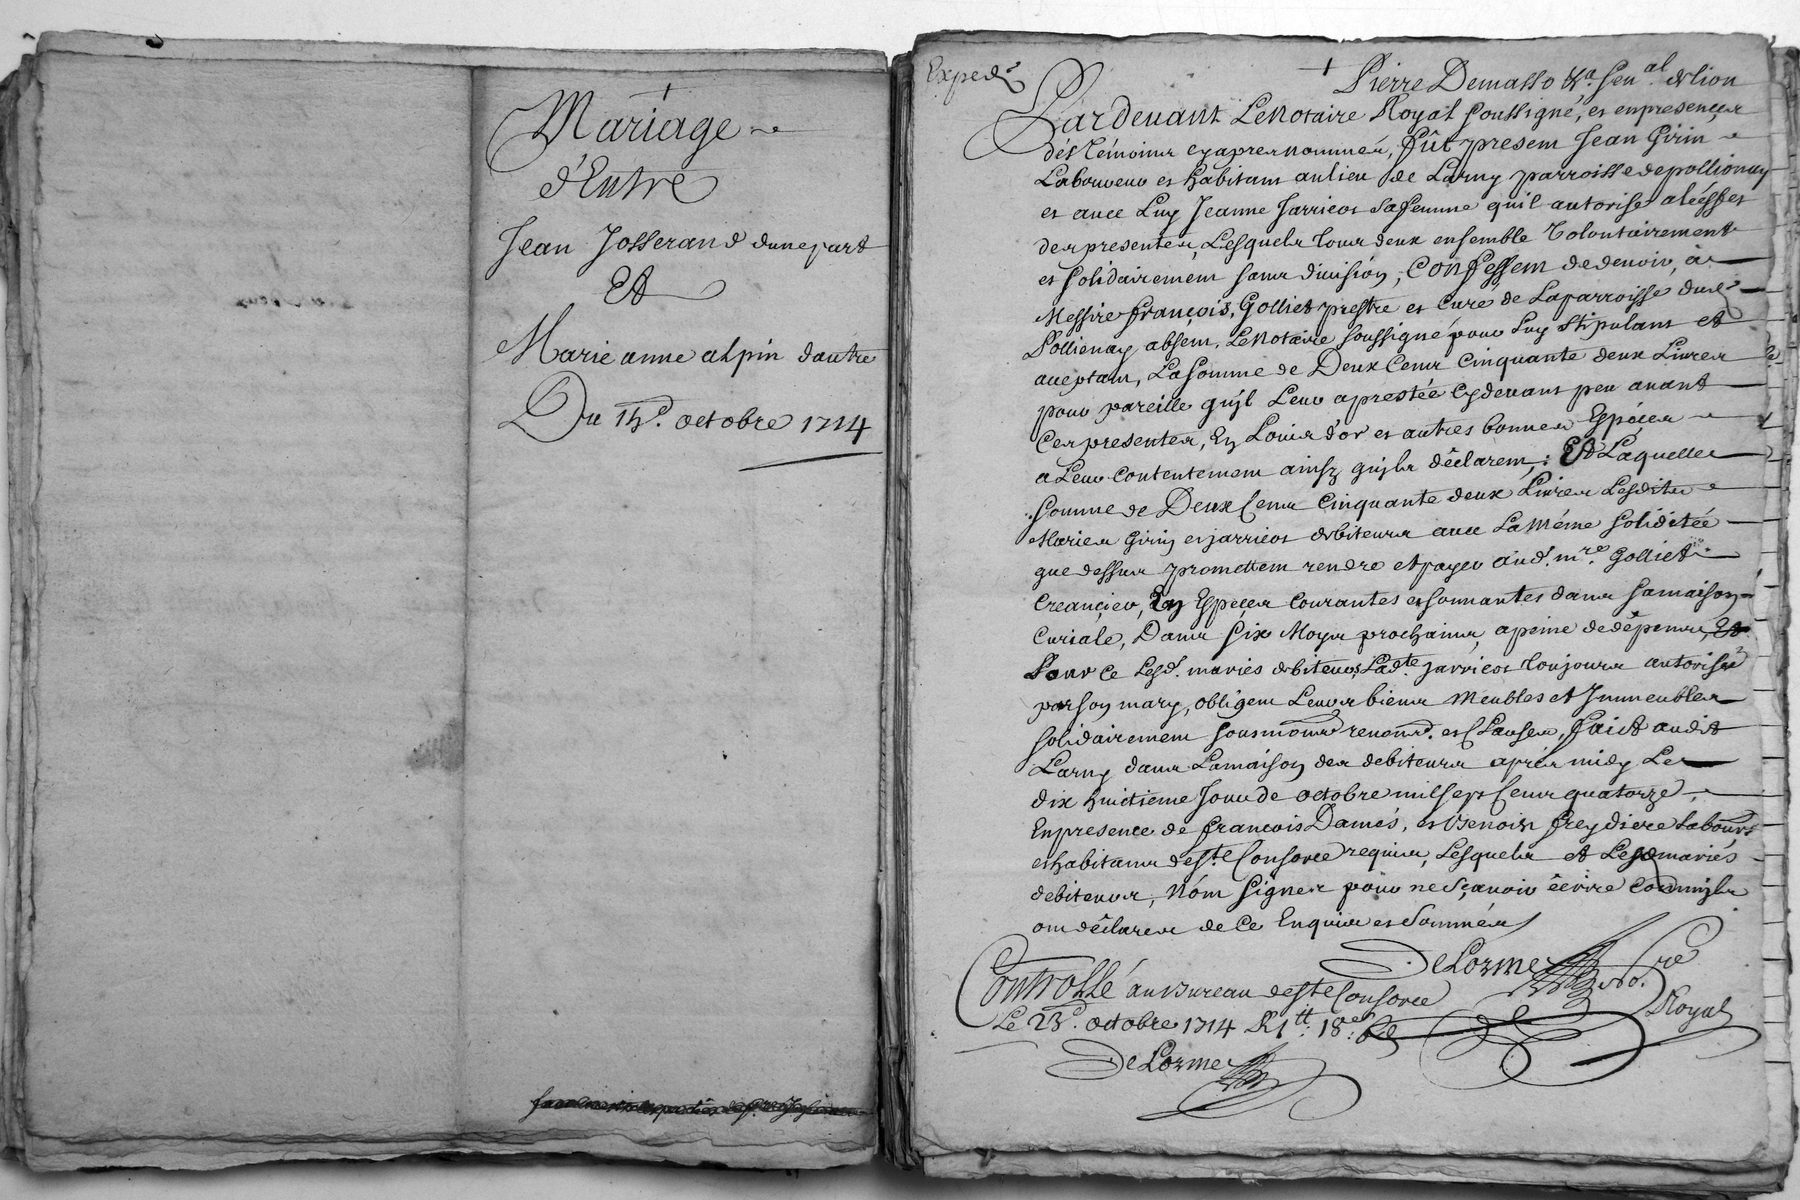 Mariage
d'Entre
Jean Josserand dunepart
Et
Marie anne alpin dautre
Du 14e. octobre 1714
Exped.e
Pierre Demasso Sen.al de lion
Pardevant LeNotaire Royal soussigné, et enpresences
dés Témoins cyapres nommés, fût present Jean Girin
Laboureur et habitant aulieu de Larny parroisse depollionay
et avec Luy Jeanne Jarricot Safemme quil autorise aleéffect
des presentes, Lesquels tous deux ensemble Volontairement
et solidairement sans division, Confessent dedevoir, à
Messire françois, Golliet prestre et Curé de Laparroisse dud.
Pollionay absent, LeNotaire soussigné pour Luy stipulant et
aceptant, Lasomme de Deux Cent Cinquante deux Livres
pour pareille qu'il Leur aprestée cydevant peu avant
Ces presentes, En Louis d'or et autres bonnes Espéces
a Leur contentement ainsy quils déclarent: Et Laquelle
somme de Deux Cent Cinquante deux Livres Lesdits
Maries Girin et jarricot debiteurs avec La méme solidité
que dessus promettent rendre et payer aud. mre. Golliet
Creancier, En Espeçes courantes et sonnantes dans samaison
Curiale, Dans Six Moys prochains, apeine dedépens,
Pour ce Lesd. mariés debiteurs, Ladte. jarricot toujours autorisée
par son mary, obligent Leurs biens Meubles et Immeubles
solidairement sousmons renond. et Clauses, faict audit
Larny dans Lamaison des debiteurs aprés midy Le
dix huictieme Jour de octobre mil sept Cent quatorze,
Enpresence de françois Damés, et Benoist freydiere Labours
et habitans deste. Consorce requis, Lesquels et Lesdmariés
debiteurs, N'ont signer pour ne sçavoir écrire comm'ils
ont déclares de ce Enquis et Sommés
DeLorme No.re
Royal
Controllé au Bureau deste Consorce
Le 23e. octobre 1714 R 1tt. 18s.
DeLorme